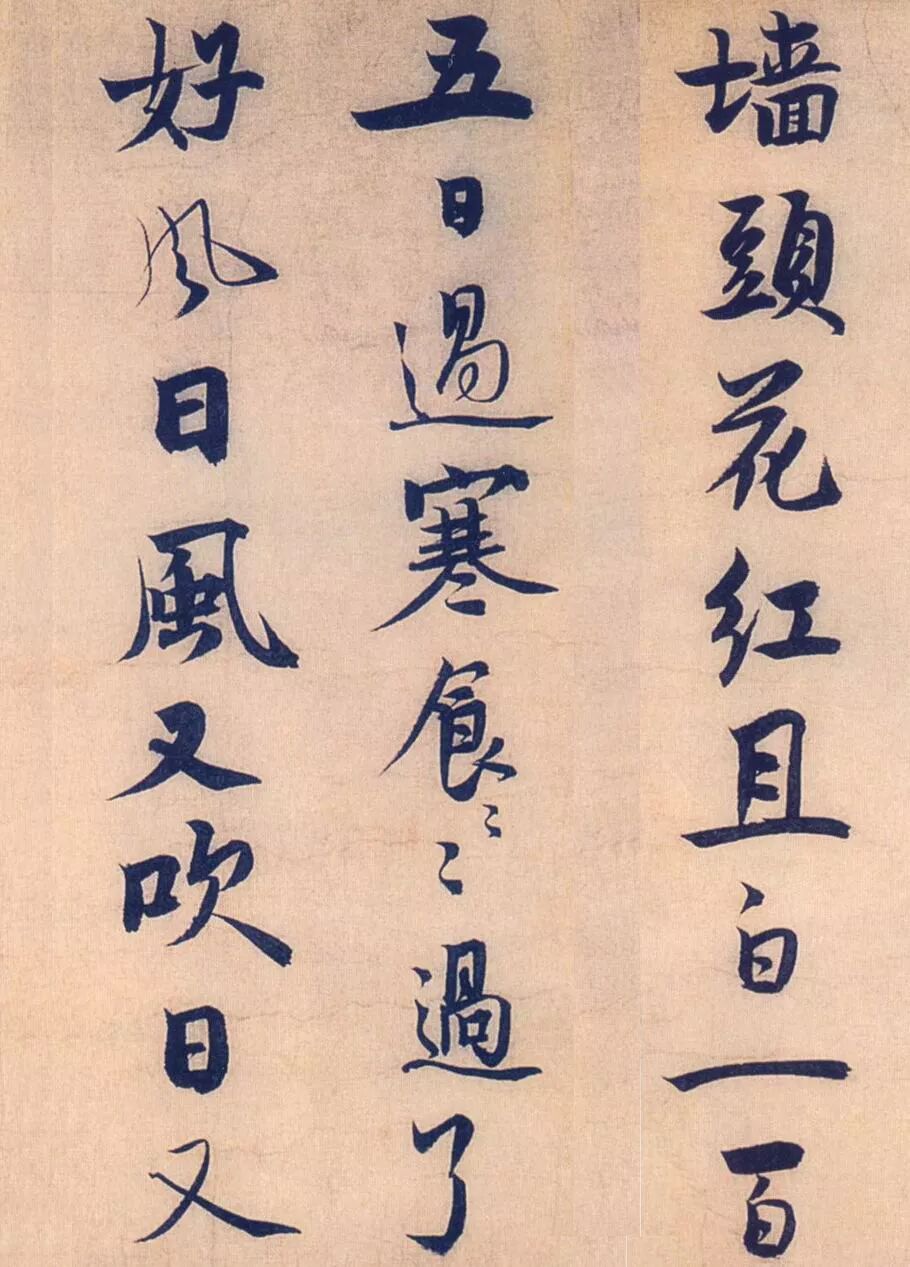 墙頭花红且白一百
五日過寒食〻〻過了
好風日風又吹日又